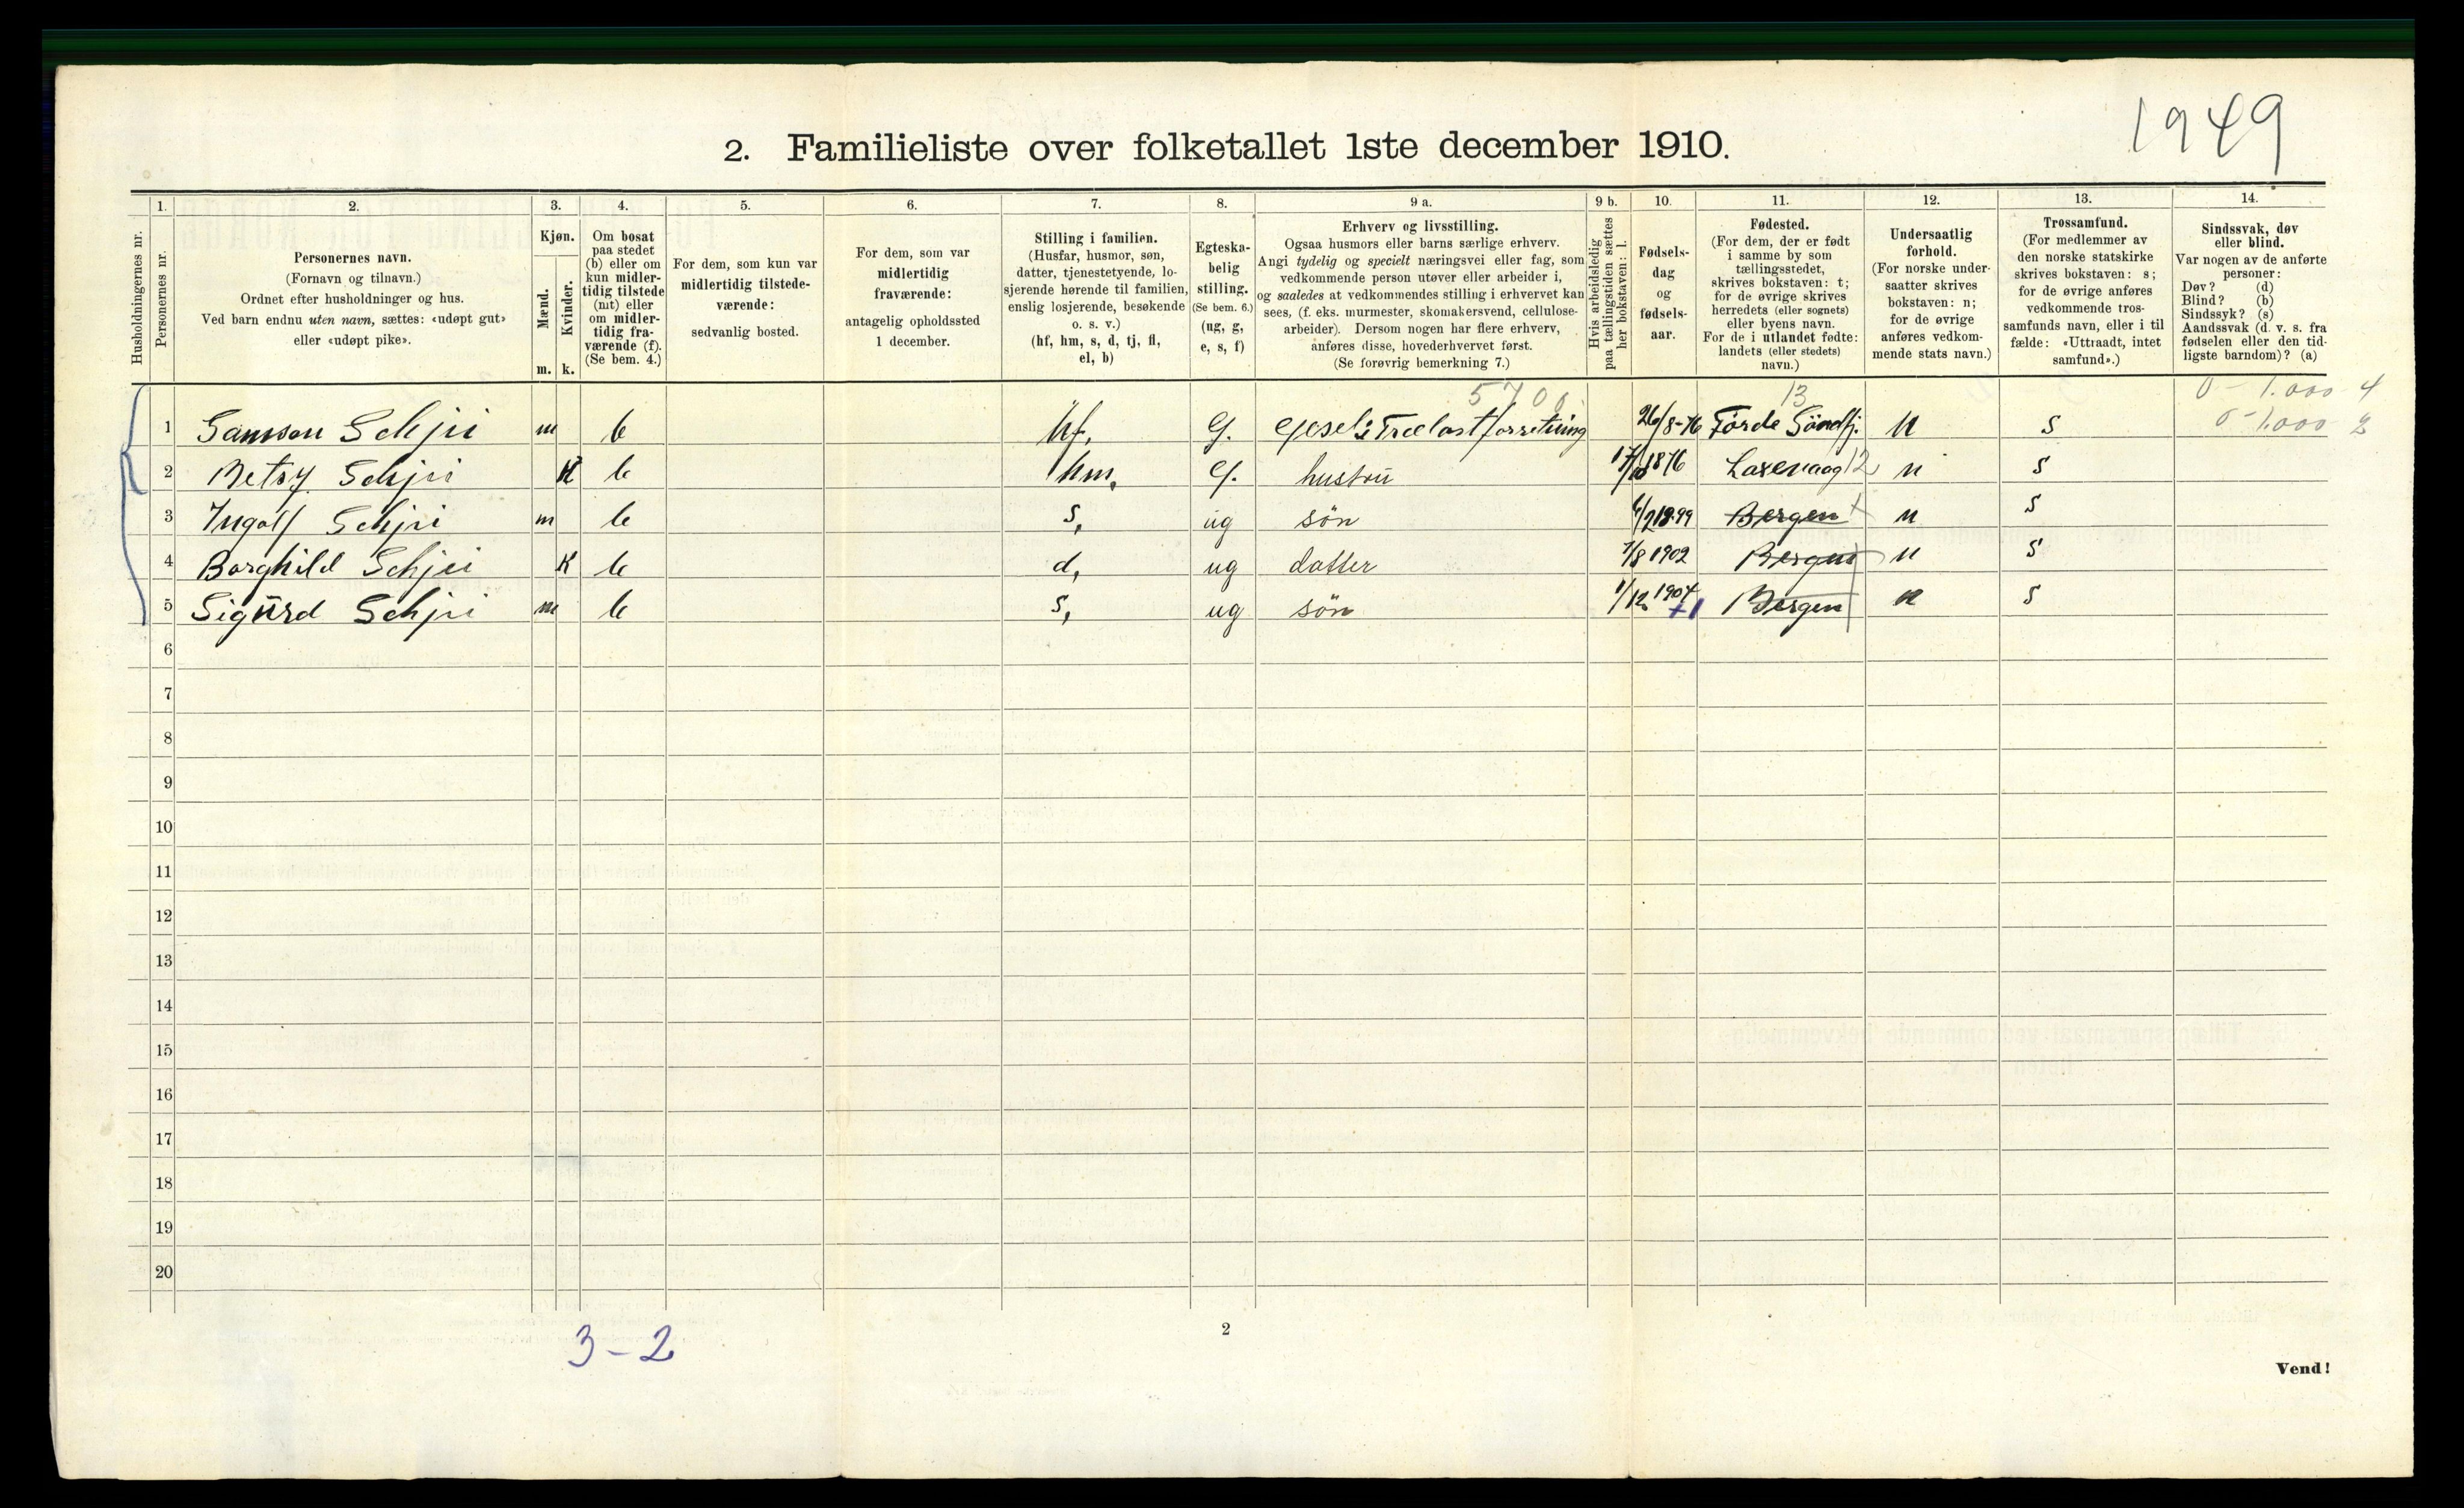 1949
2. Familieliste over folketallet 1ste december 1910.
Husholdningernes nr.
1.
Personernes nr.
2.
Personernes navn.
(Fornavn og tilnavn.)
Ordnet efter husholdninger og hus.
Ved barn endnu uten navn, sættes: «udøpt gut»
eller «udøpt pike».
3.
Kjøn.
Mænd.
Kvinder.
m. k.
4.
Om bosat
paa stedet
(b) eller om
kun midler-
tidig tilstede
(mt) eller
om midler-
tidig fra-
værende (f).
(Se bem. 4.)
5.
For dem, som kun var
midlertidig tilstede-
værende:
sedvanlig bosted.
6.
For dem, som var
midlertidig
fraværende:
antagelig opholdssted
1 december.
7.
Stilling i familien.
(Husfar, husmor, søn,
datter, tjenestetyende, lo-
sjerende hørende til familien,
enslig losjerende, besøkende
o. s. v.)
(hf, hm, s, d, tj, fl,
el, b)
8.
Egteska-
belig
stilling.
(Se bem. 6.)
(ug, g,
e, s, f)
9 a.
Erhverv og livsstilling.
Ogsaa husmors eller barns særlige erhverv.
Angi tydelig og specielt næringsvei eller fag, som
vedkommende person utøver eller arbeider i,
og saaledes at vedkommendes stilling i erhvervet kan
sees, (f. eks. murmester, skomakersvend, cellulose-
arbeider). Dersom nogen har flere erhverv,
anføres disse, hovederhvervet først.
(Se forøvrig bemerkning 7.)
9 b.
Hvis arbeidsledig
paa tællingstiden sættes
her bokstaven: l.
10.
Fødsels-
dag
og
fødsels-
aar.
11.
Fødested.
(For dem, der er født
i samme by som
tællingsstedet,
skrives bokstaven: t;
for de øvrige skrives
herredets (eller sognets)
eller byens navn.
For de i utlandet fødte:
landets (eller stedets)
navn.)
12.
Undersaatlig
forhold.
(For norske under-
saatter skrives
bokstaven: n;
for de øvrige
anføres vedkom-
mende stats navn.)
13.
Trossamfund.
(For medlemmer av
den norske statskirke
skrives bokstaven: s;
for de øvrige anføres
vedkommende tros-
samfunds navn, eller i til
fælde: «Uttraadt, intet
samfund».)
14.
Sindssvak, døv
eller blind.
Var nogen av de anførte
personer:
Døv? (d)
Blind? (b)
Sindssyk? (s)
Aandssvak (d. v. s. fra
fødselen eller den tid-
ligste barndom)? (a)
5700 13 0 - 1.000 4
1 Samson Schjei m b hf, g. Trælastforretning 26/8-76 Førde Søndfj. n s 0 - 1.000 2
2 Betsy Schjei k b hm, g. hustru 1876 Laxevaag 12 n s
3 Ingolf Schjei m b s, ug søn 6/2 1899 Bergen n s
4 Borghild Schjei k b d, ug datter 7/8 1902 Bergen n s
5 Sigurd Schjei m b s, ug søn 1/12 1904 +1 Bergen n s
6
7
8
9
10
11
12
13
14
15
16
17
18
19
20
3 - 2
2
Vend!